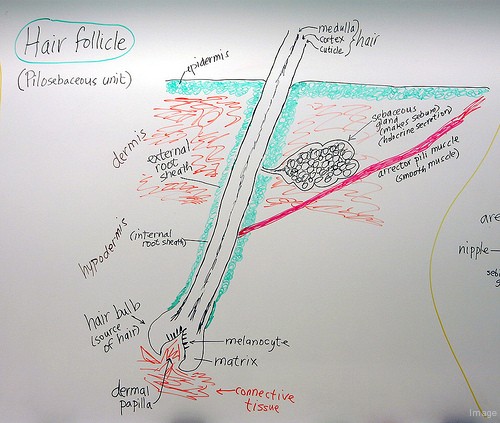 Hair follicle
(Pilosebaceous unit)
medulla
cortex
cuticle
hair
epidermis
dermis
external
root
sheath
sebaceous
gland
(makes sebum)
(holocrine secretion)
arrector pili muscle
(smooth muscle)
hypodermis
(internal
root sheath)
hair bulb
(source
of hair)
melanocyte
matrix
dermal
papilla
connective
tissue
are
nipple
seb
s
Image